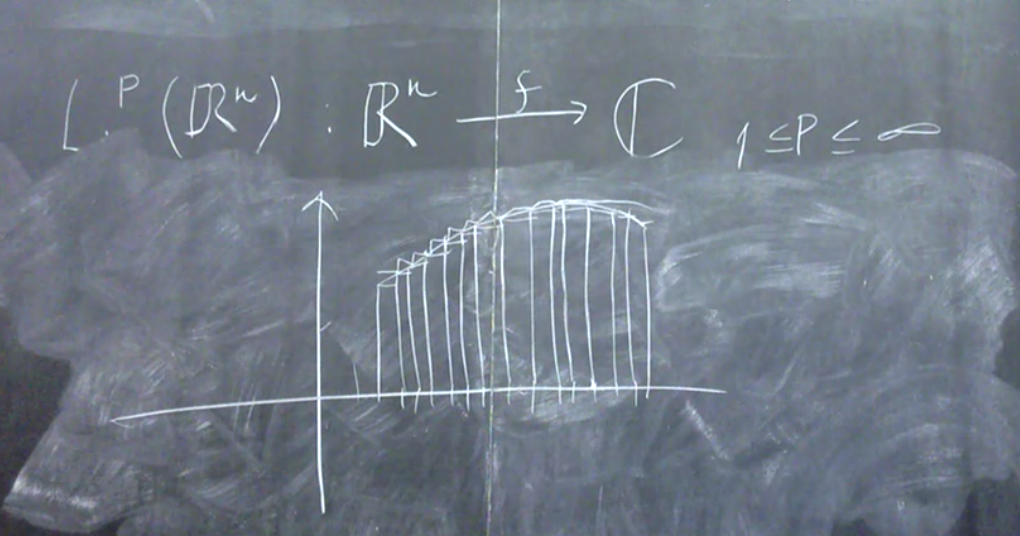 L^p(ℝ^n) : ℝ^n \xrightarrow{f} ℂ 1 ≤ p ≤ ∞